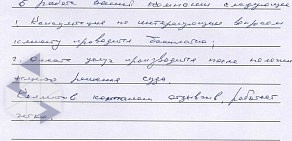 В работе вашей компании следующее
1. Консультация по интересующим вопросам
клиенту проводится бесплатно;
2. Оплата услуг производится после положи
тельного решения суда
Коллектив компании отзывчив, работает